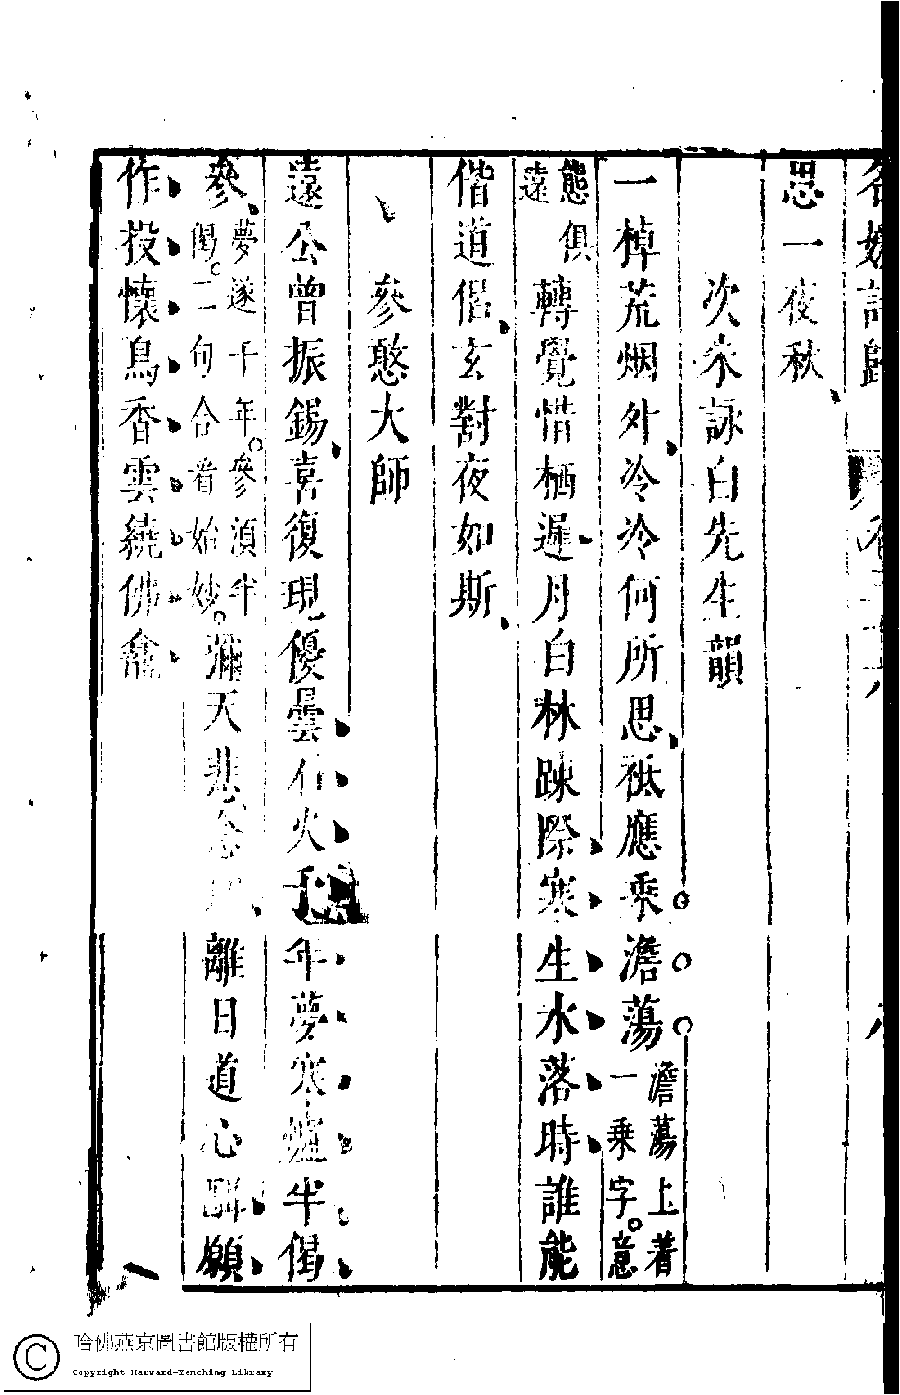 名媛詩歸 卷三十六 八
思一夜秋
次朱詠白先生韻
一棹荒烟外冷冷何所思秪應乘澹蕩澹蕩上著一乘字意
態俱遠轉覺惜栖遲月白林疎際寒生水落時誰能
偕道侶玄對夜如斯
參憨大師
遠公曾振錫喜復現優曇火千年夢寒爐半偈
參夢遂千年參須半偈二句合看始妙彌天悲離日道心願
作投懷鳥香雲繞佛龕
哈佛燕京圖書館版權所有
Copyright Harvard-Yenching Library